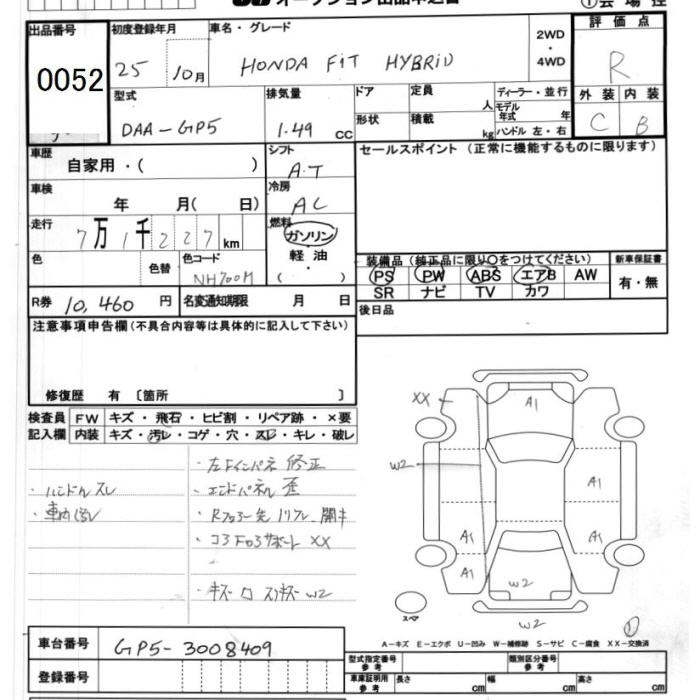 オークション出品申込書
①会場控
出品番号 初度登録年月 車名・グレード 2WD ・ 4WD 評価点
0052 25 10月 HONDA FIT HYBRID R
型式 排気量 ドア 定員 人 ディーラー・並行 外装 内装
DAA-GP5 1.49 cc 形状 積載 kg モデル年式 年 ハンドル 左・右 C B
車歴 自家用・( ) シフト A.T セールスポイント (正常に機能するものに限ります)
車検 年 月( 日) 冷房 AC
走行 7万1千227km 燃料 ガソリン 軽油 ・ ( )
色 色替 色コード NH700M
装備品 (純正品に限り○をつけてください) 新車保証書
PS PW ABS エアB AW 有・無
SR ナビ TV カワ
R券 10,460円 名変通知期限 月 日 後日品
注意事項申告欄(不具合内容等は具体的に記入して下さい)
修復歴 有 〔箇所 〕
検査員 FW キズ・飛石・ヒビ割・リペア跡・×要
記入欄 内装 キズ・汚レ・コゲ・穴・スレ・キレ・破レ
・ハンドルスレ
・車内汚レ
・左ドインパネ 修正
・エンドパネル 歪
・Rフロアー先
・コアロアサポート XX
・キズ
W2
XX A1
W2
A1
A1 A1
A1 W2
スペア W2 ①
A-キズ E-エクボ U-凹み W-補修跡 S-サビ C-腐食 XX-交換済
車台番号 GP5-3008409
登録番号
型式指定番号 参考 類別区分番号 参考
車庫証明用 参考 長さ cm 幅 cm 高さ cm